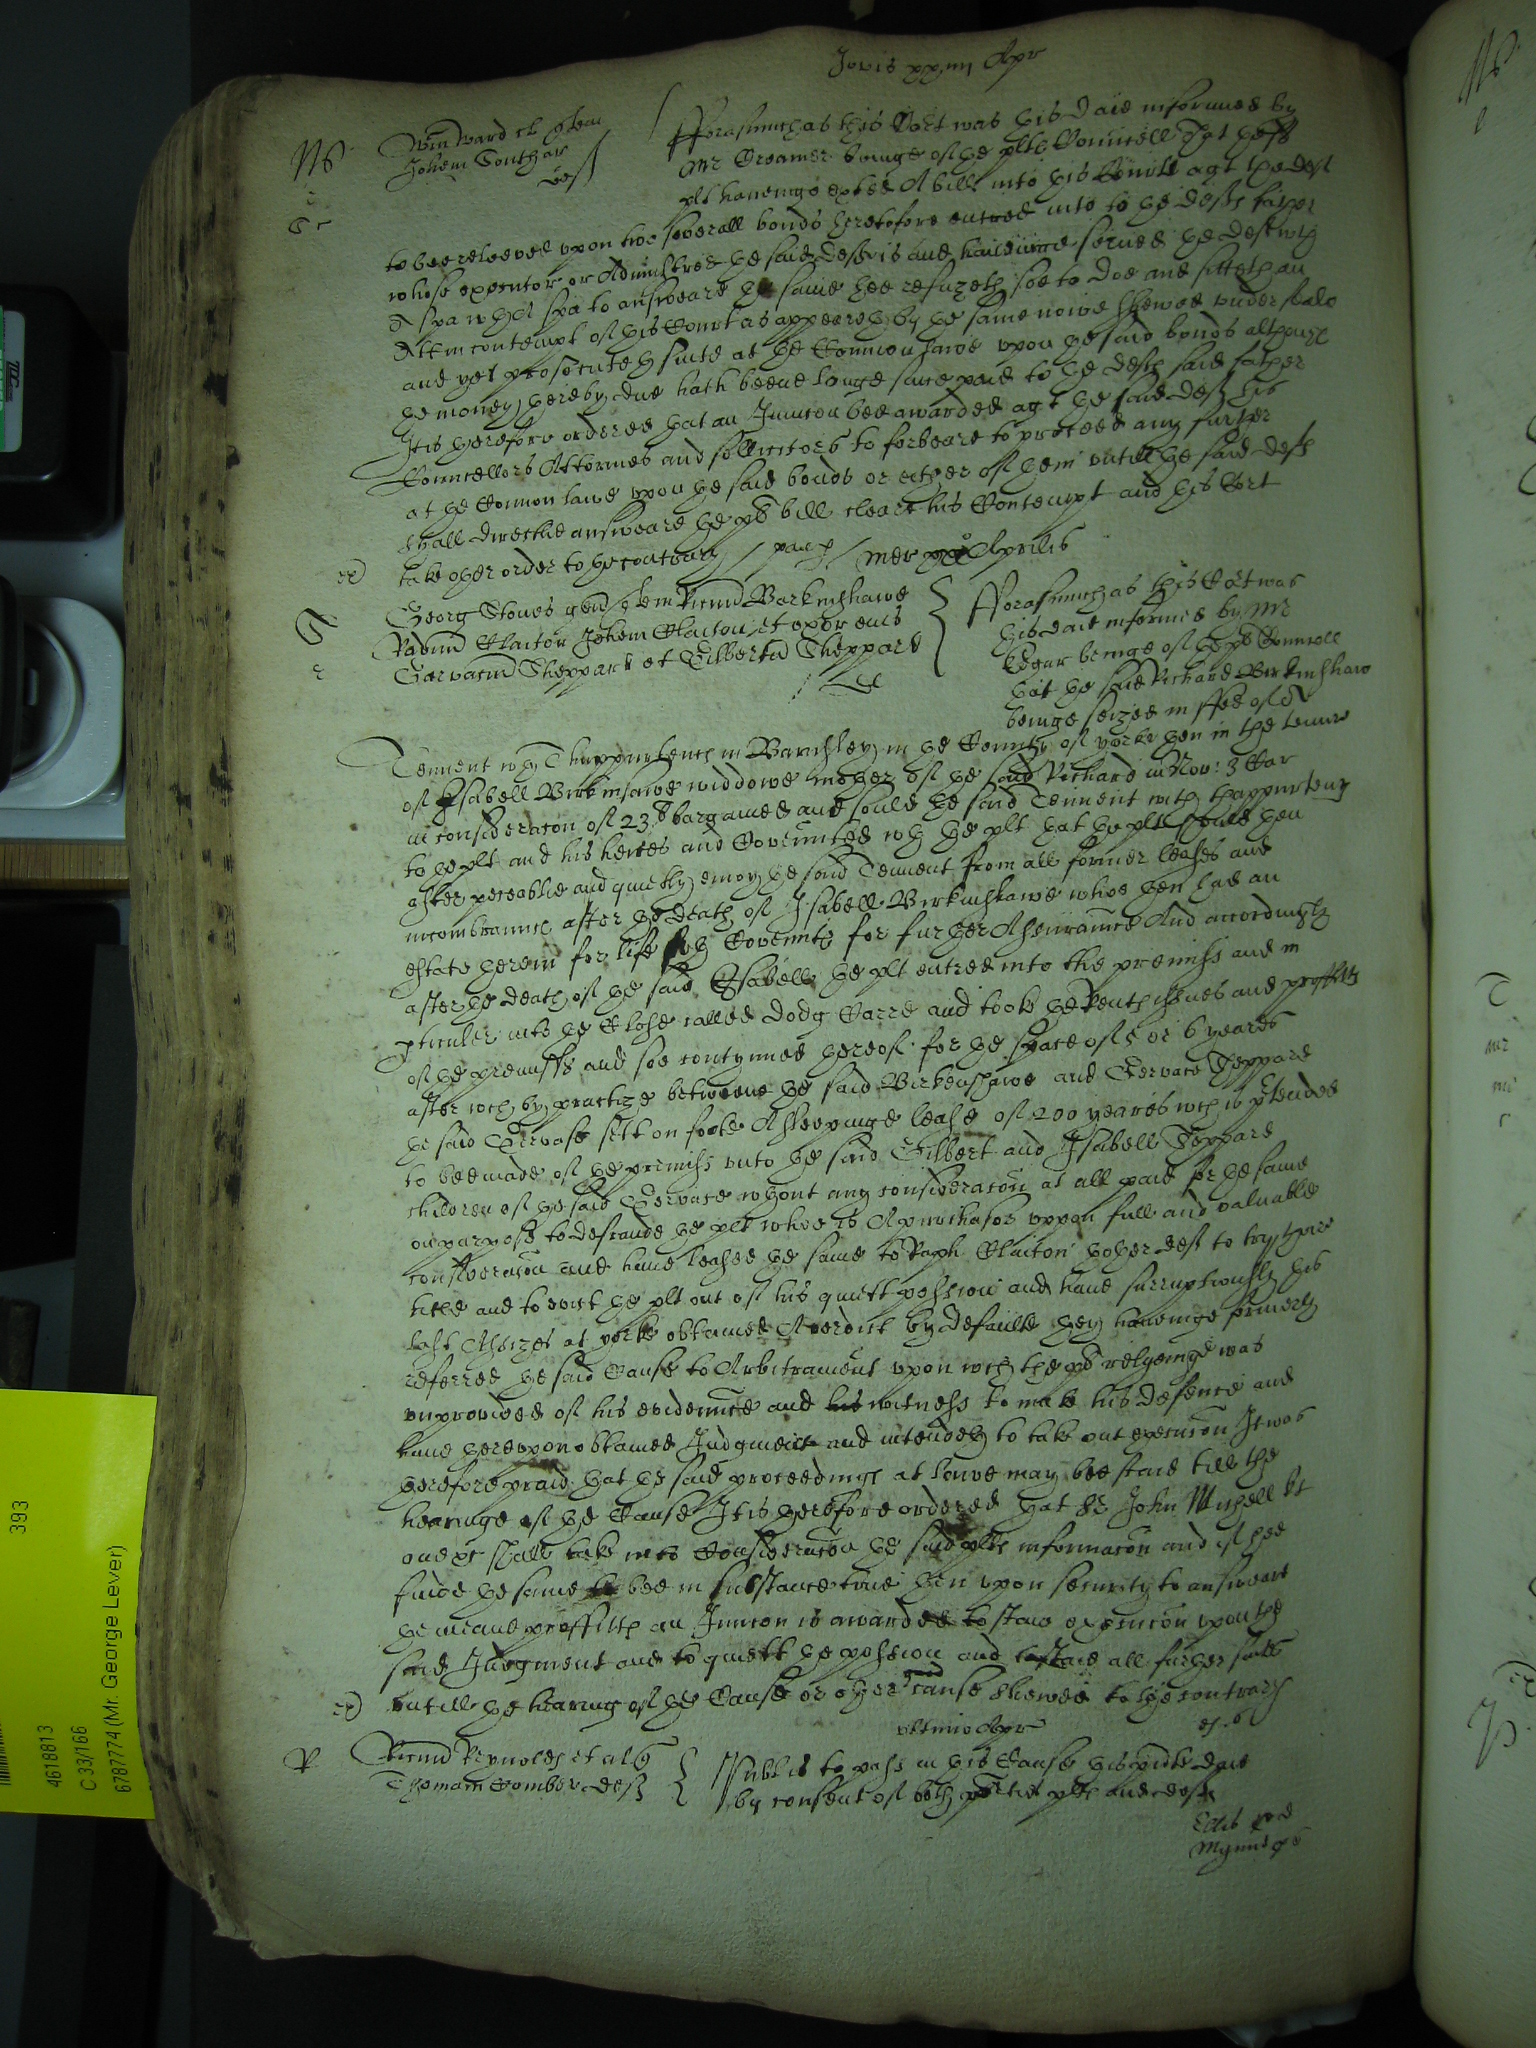 Jovis xxiiii Apr
Win Ward cl quer
Johem Southgat
def
fforasmuch as this Cort was this daie informed by
Mr Creamer beinge of the plts Councell That the
plt haveinge exhited A bill into this Court agt the deft
to bee releeved upon two severall bonds heretofore entred into to the defts father
whose executor or Administred the said deft is and haveinge served the deft with
A spa wch spa to answeare the same hee refuzeth soe to doe and sitteth an
Attm contempt of this Court as appeareth by the same nowe shewed under seale
and yet prosecuteth suite at the Common Lawe upon the said bonds although
the money thereby due hath beene longe since paid to the defts said father
It is therefore ordered that an Iniuncon bee awarded agt the said deft his
Councellors Attornies and sollicitors to forbeare to proceed any further
at the Common Lawe upon the said bonds or either of them untill the said deft
shall directlie answeare the pts bill cleare his Contempt and this Cort
take other order to the contrary
Mer Aprilis
Georg Stones gen quer Ricum Barkinshawe
Radum Claiton Johem Claiton et uxor eius
Gervacium Sheppard et Gilbertu Sheppard
def
fforasmuch as this Cort was
this daie informed by Mr
Edgar beinge of the pts Councell
that the said Richard Birkinshaw
beinge seized in ffee of A
Tenement wth Thappurtencs in Barnsley in the County of Yorke then in the tenure
of Isabell Birkinshawe widdowe mother of the said Richard in Nov: 3 Car
in consideracon of 23 bargained and sould the said Tenement with thappurtencs
to the plt and his heires and Covennted wth the plt that the plt should then
after peceablie and quietly enioy the said Tenement from all former leases and
incombrances after the death of Isabell Birkinshawe whoe then had an
estate therein for life wth Covennts for further Assurance And accordingly
after the death of the said Isabell the plt entred into the premisses and in
pticuler into the Close called Dodg Carre and tooke the Rents issues and proffitts
of the premisses and soe contynued thereof for the space of 5 or 6 yeares
after wch by practize betweene the said Birkenshawe and Gervace Sheppard
the said Gervase sett on foote A sleepinge lease of 200 yeares wch is ptended
to bee made of the premisses unto the said Gilbert and Isabell Sheppard
children of the said Gervace wthout any consideracon at all paid for the same
on purpose to defraude the plt whoe is A purchasor uppon full and valuable
consideracon and have leased the same to Raph Claiton thother deft to try there
title and to evict the plt out of his quiett possion and have surruptiously this
last Assizes at Yorke obtained A verdict by defaulte they haveinge formerly
referred the said Cause to Arbitrament upon wch the pt relyeinge was
unprovided of his evidence and witness to make his defence and
have thereupon obtained Iudgment and intendeth to take out execucon It was
therefore praid that the said proceedings at Lawe may bee staid till the
hearinge of the Cause It is therefore ordered that Sr John Michell kt
one etc shall take into Consideracon the said plts informacon and if hee
finde the same to bee in substance true then upon security to answeare
the meane proffitts an Iniuncon is awarded to staie execucon upon the
said Iudgment and to quiett the possion and to staie all further suite
untill the hearing of the Cause or other cause shewed to the contrary
ultimo Apr
Ricum Reynolds et al
Thomam Comber def
Publis to pass in this Cause this psent daie
by consent of both parties plts and defts
393
4618813
C 33/166
6787774 (Mr. George Lever)